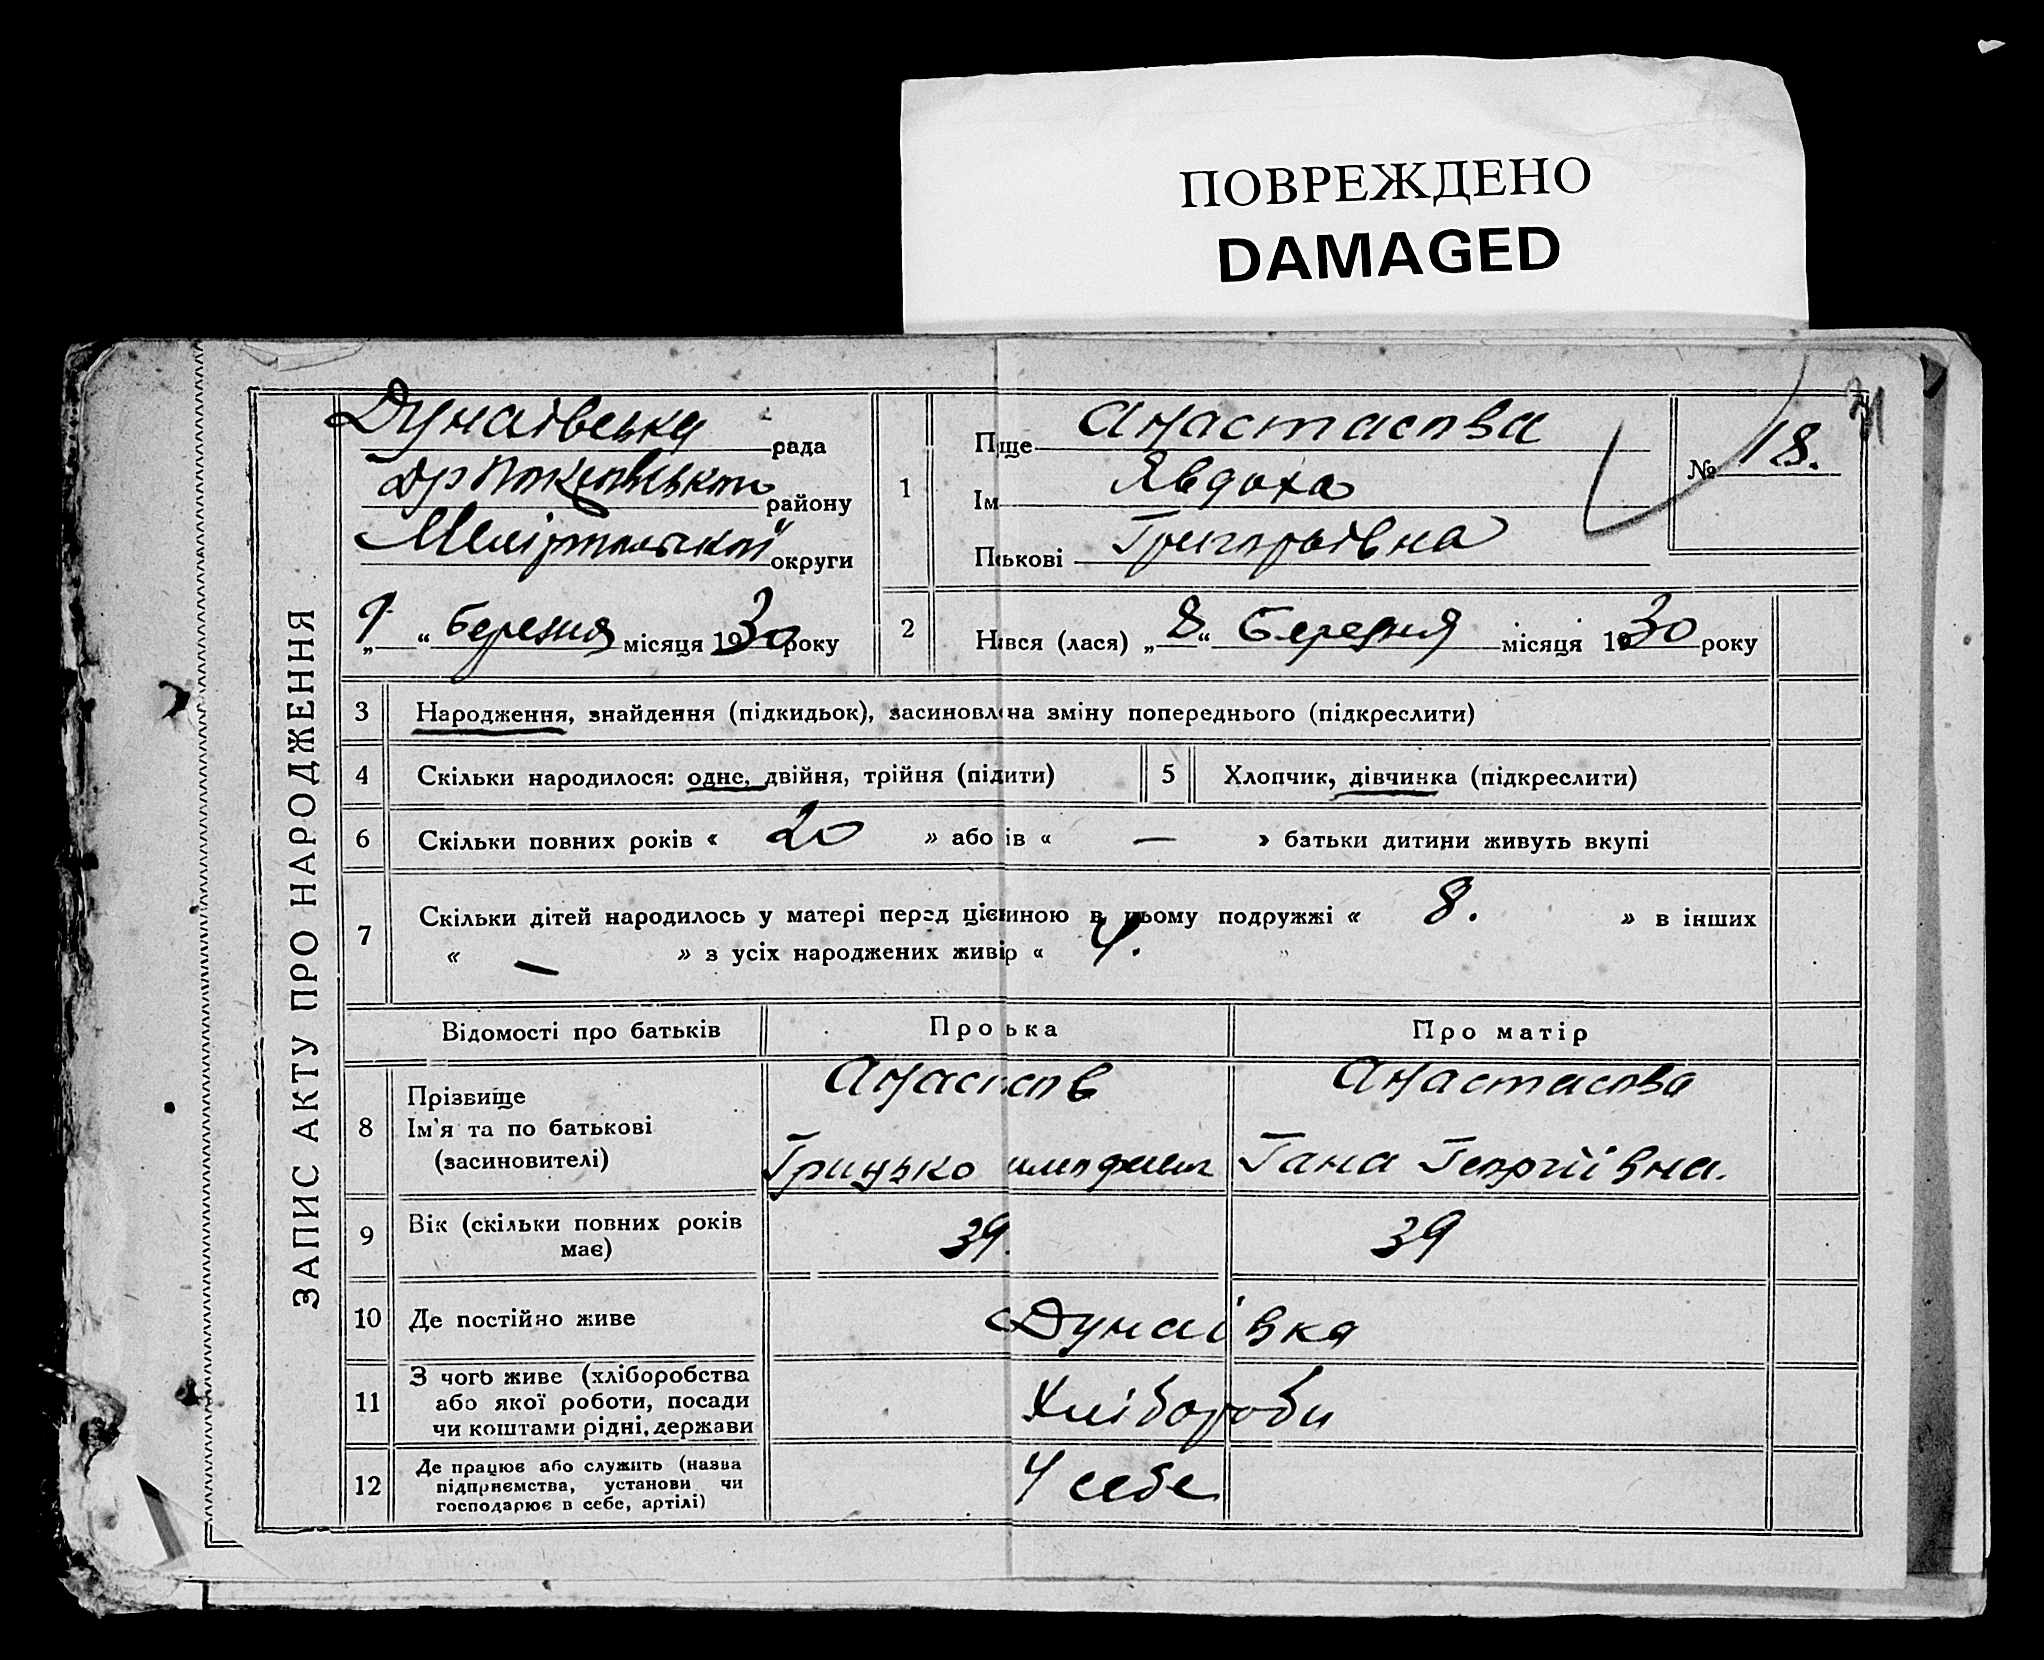 ПОВРЕЖДЕНО
DAMAGED
31
ЗАПИС АКТУ ПРО НАРОДЖЕННЯ
Дунаівська рада
району
округи
„9“ березня місяця 1930 року
1
Пще Анастасова
Ім Явдоха
Пськові Григорьівна
№ 18.
2
Нвся (лася) „8“ Березня місяця 1930 року
3 Народження, знайдення (підкидьок), засиновл на зміну попереднього (підкреслити)
4 Скільки народилося: одне, двійня, трійня (підити) 5 Хлопчик, дівчинка (підкреслити)
6 Скільки повних років « 20 » або ів « — » батьки дитини живуть вкупі
7 Скільки дітей народилось у матері перед цієиною в цьому подружжі « 8. » в інших
« — » з усіх народжених живір « 4. »
Відомості про батьків Проька Про матір
8 Прізвище
Ім'я та по батькові
(засиновителі)
Анасов Анастасова
Грицько Гана Георгіівна.
9 Вік (скільки повних років
має)
39. 39
10 Де постійно живе Дунаівка
11 З чого живе (хліборобства
або якої роботи, посади
чи коштами рідні, держави
Хлібороби
12 Де працює або служить (назва
підприємства, установи чи
господарює в себе, артілі)
У себе